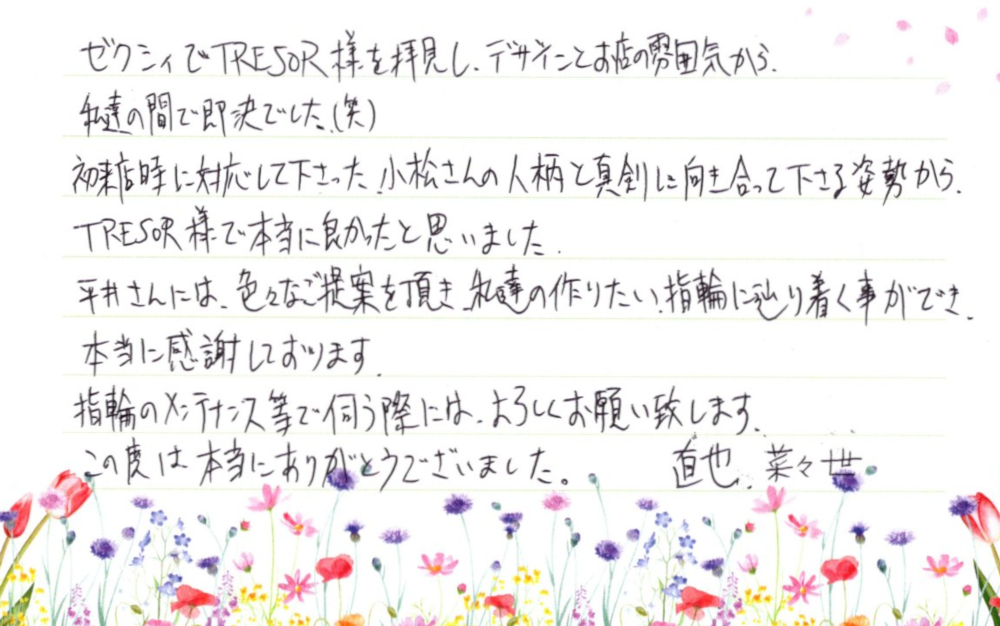 ゼクシィでTRESOR様を拝見し、デザインとお店の雰囲気から、
私達の間で即決でした。(笑)
初来店時に対応して下さった、小松さんの人柄と真剣に向き合って下さる姿勢から、
TRESOR様で本当に良かったと思いました。
平井さんには、色々なご提案を頂き、私達の作りたい指輪に辿り着く事ができ、
本当に感謝しております。
指輪のメンテナンス等で伺う際には、よろしくお願い致します。
この度は本当にありがとうございました。 直也、菜々世